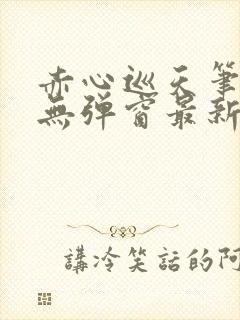 赤心巡天筆
無彈窗最新
講冷笑話的阿